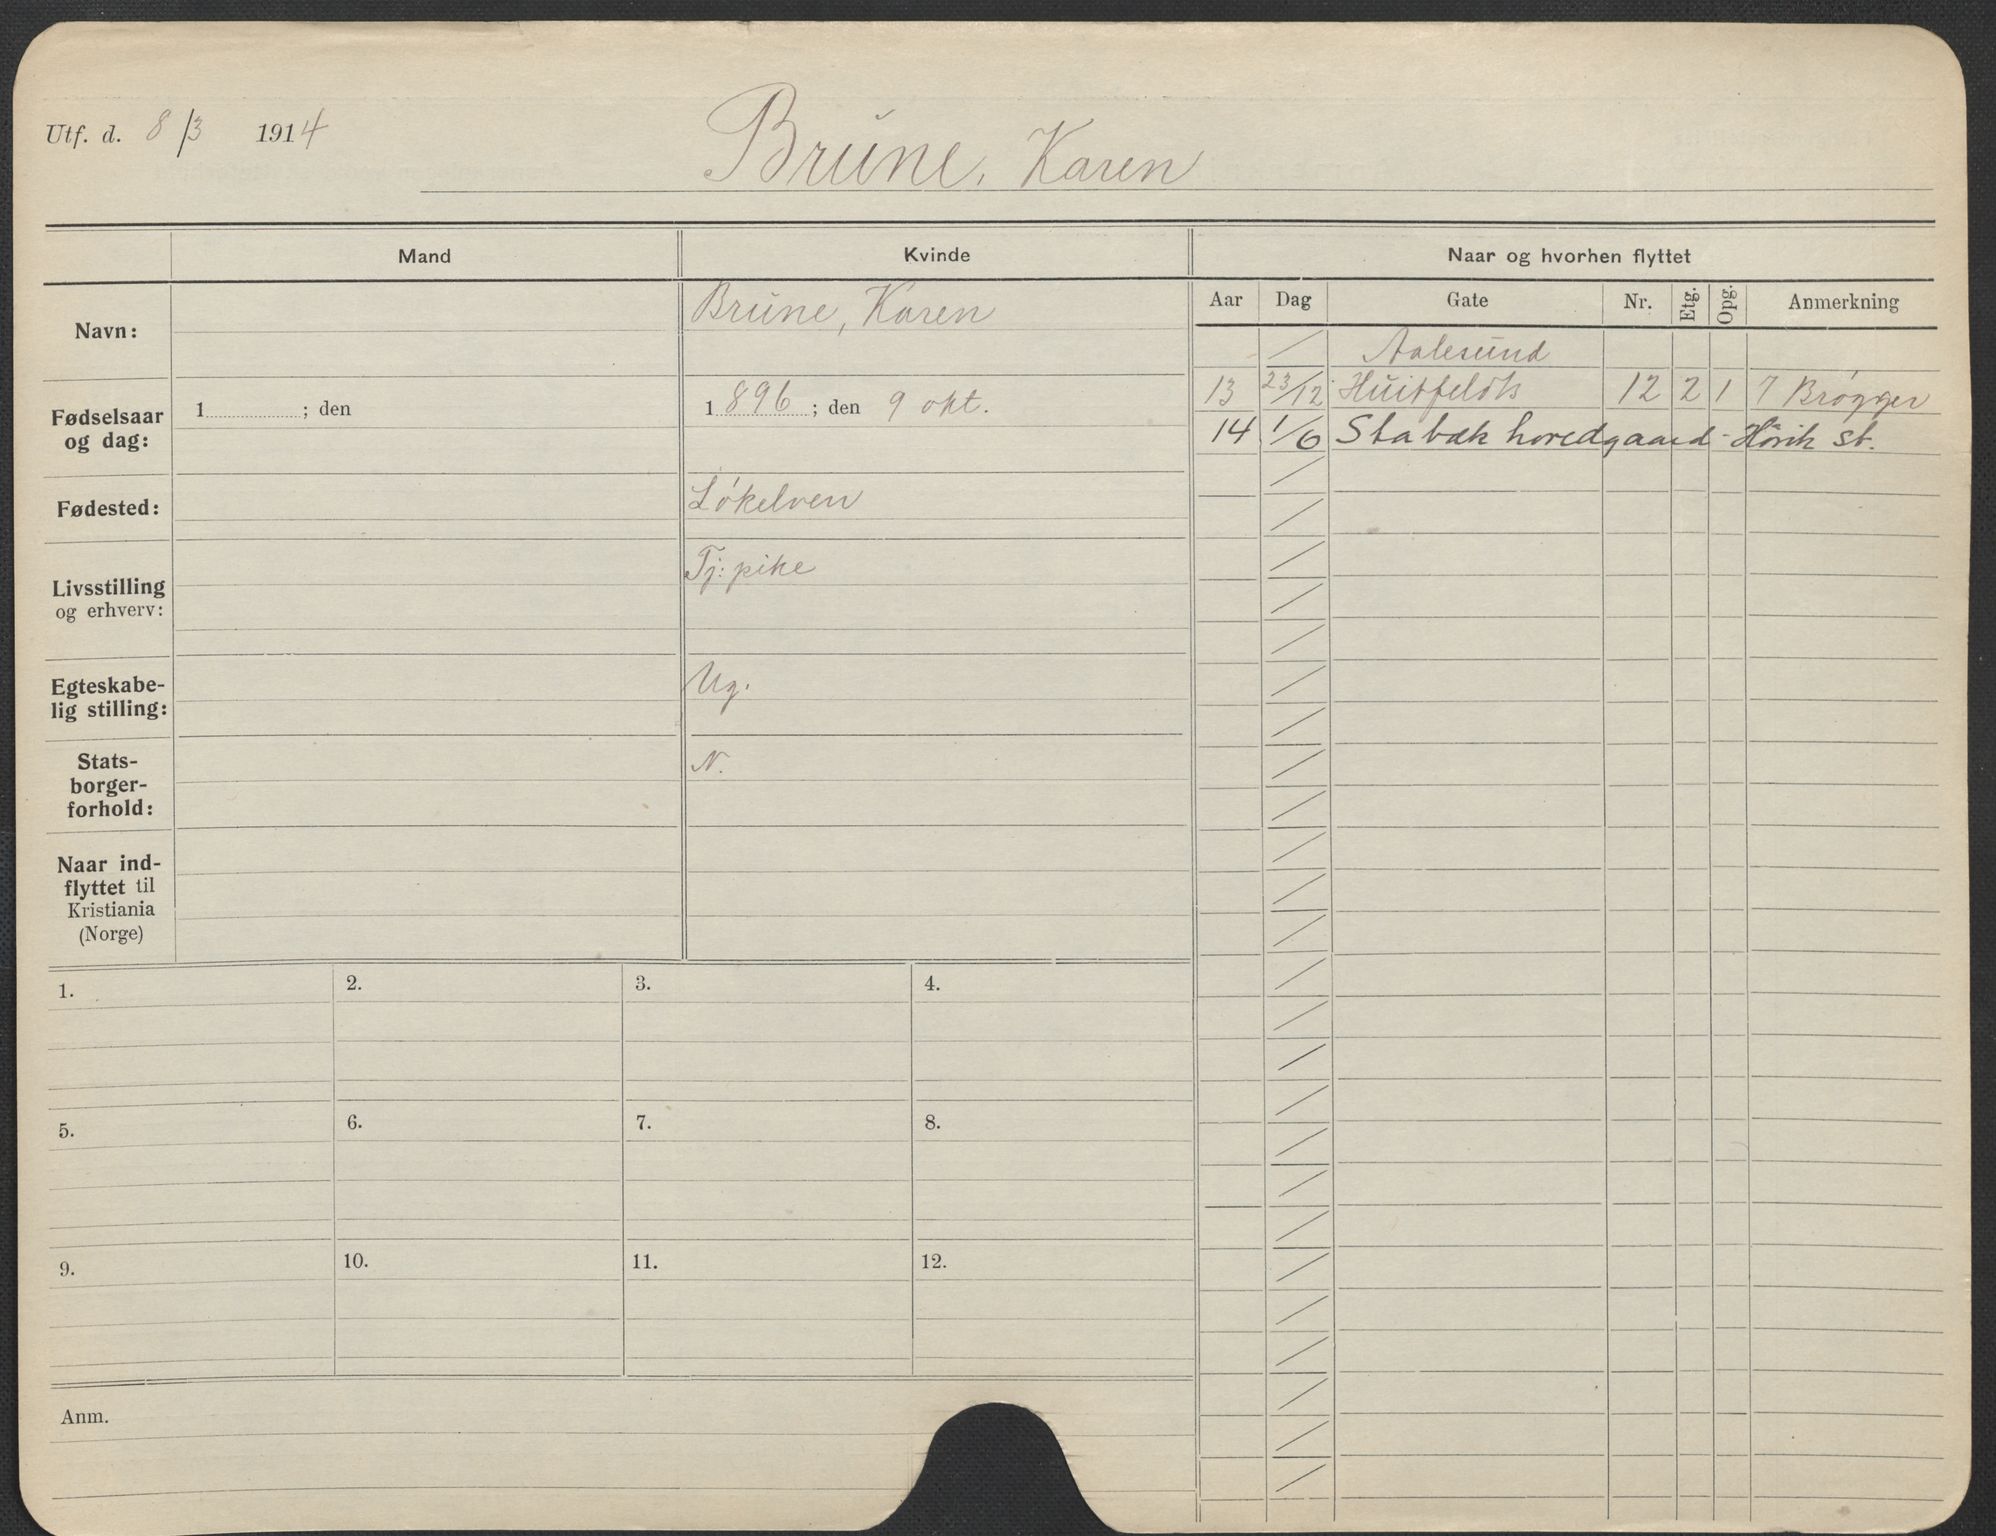 Utf. d. 8/3 1914
Brune, Karen
Mand Kvinde Naar og hvorhen flyttet
Aar Dag Gate Nr. Etg. Opg. Anmerkning
Navn: Brune, Karen
Fødselsaar og dag: 1 ; den 1896 ; den 9 okt.
Fødested: Løkelven
Livsstilling og erhverv: Tj: pike
Egteskabe-
lig stilling: Ug.
Stats-
borger-
forhold: N.
Naar ind-
flyttet til
Kristiania
(Norge)
Aalesund
13 23/12 Huitfeldts 12 2 1 7 Brøgger
14 1/6 Stabæk hovedgaard - Høvik st.
1. 2. 3. 4.
5. 6. 7. 8.
9. 10. 11. 12.
Anm.